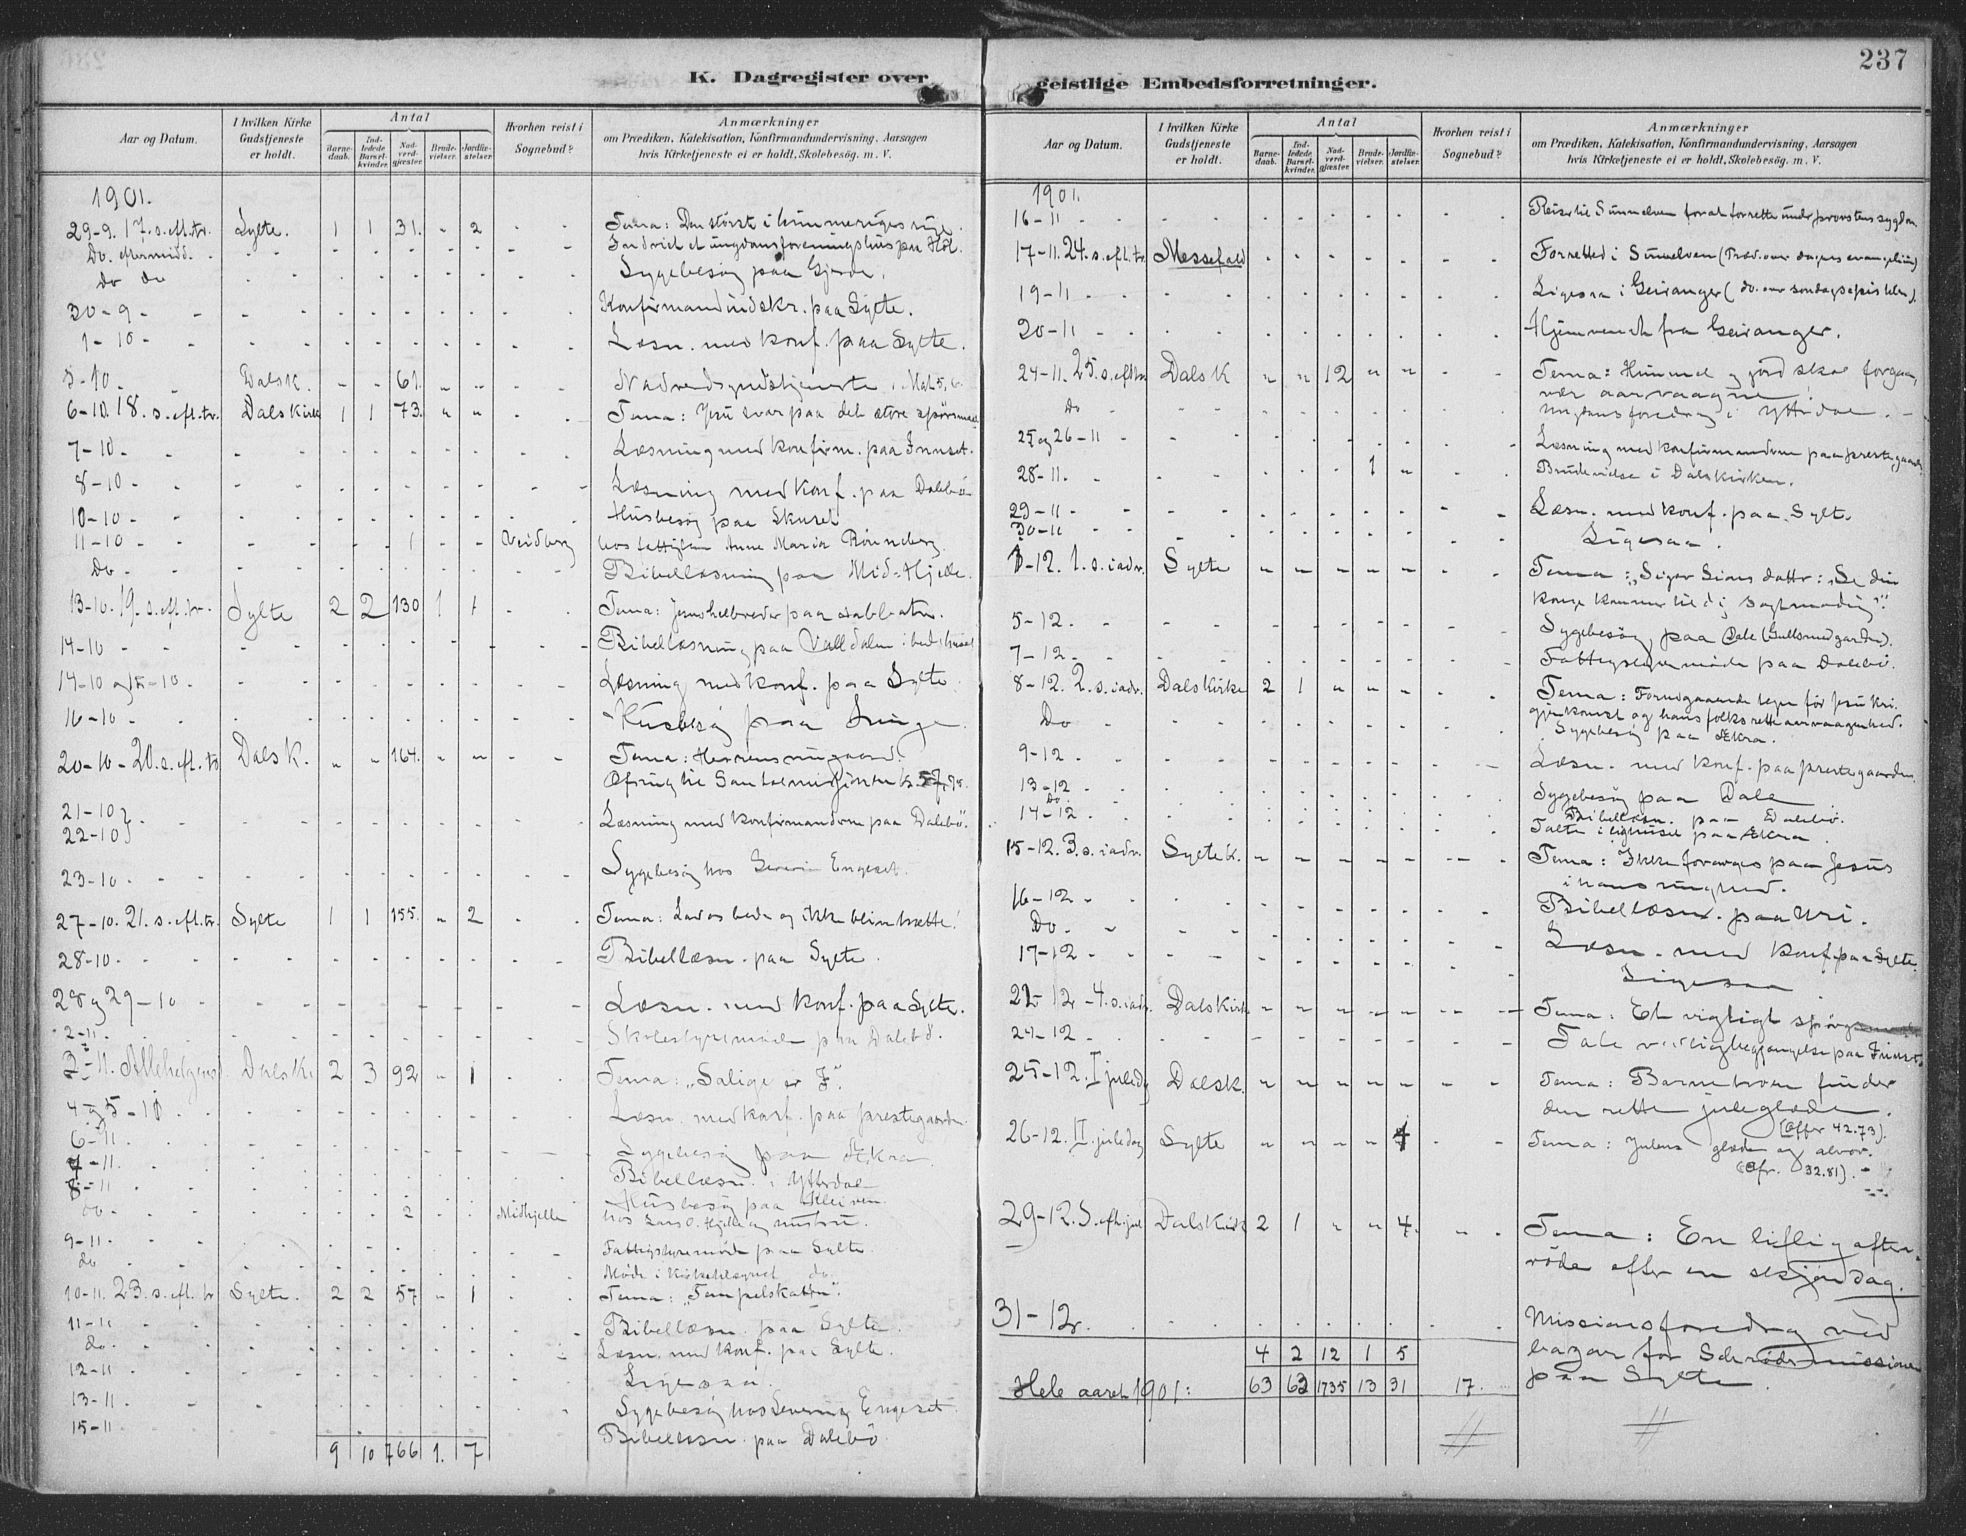 237
K. Dagregister over
geistlige Embedsforretninger.
Aar og Datum.
I hvilken Kirke Gudstjeneste er holdt.
Antal
Barnedaab.
Indledede Barselkvinder.
Nadverdgjæster.
Brudevielser.
Jordfæstelser.
Hvorhen reist i Sognebud?
Anmærkninger
om Prædiken, Katekisation, Konfirmandundervisning, Aarsagen
hvis Kirketjeneste ei er holdt, Skolebesøg. m. V.
1901.
29-9. 17. s. eft. tr. Sylte. 1 1 31. - 2 Tema: Den störste i himmeriges rige.
Do. eftermidd. Indviet et ungdomsforeningshus paa
Do do Sygebesög paa Gjerde.
30-9 - Konfirmandindskr. paa Sylte.
1-10 - Læsn. med konf. paa Sylte.
5-10. Dalsk. - - 61. - - Mat 5,6.
6-10. 18. s. eft. tr. Dalskirke 1 1 73. - - Tema: Jesu svar paa det store spörsmaal
7-10 Læsning med konfirm. paa
8-10 - Læsning med konf. paa Dalebö
10-10 - Husbesög paa
11-10 1 - - hos fattiglem Anne Maria
Do - Bibellæsning paa Mid-Hjelle.
13-10. 19. s. eft. tr. Sylte 2 2 130 1 1 Tema: Jesus helbreder paa sabbaten.
14-10 Bibellæsning paa Valldalen i bedehuset
14-10 og 15-10. Læsning med konf. paa Sylte.
16-10 - Husbesög paa
20-10 - 20. s. eft. tr. Dalsk. - - 164. - - Tema: Herrens
Ofring til Santalmisjonen k.
21-10
22-10 Læsning med konfirmanderne paa Dalebö.
23-10 Sygebesög hos Engeset.
27-10. 21. s. eft. tr. Sylte 1 1 155. - 2 Tema: Lad os bede og ikke blive trætte!
28-10. Bibellæsn. paa Sylte.
28 og 29-10 Læsn. med konf. paa Sylte.
2-11. Skolestyremöde paa Dalebö.
3-11. Allehelgensd. Dalsk. 2 3 92 - 1 Tema: "Salige er I".
4 og 5-11 Læsn. med konf. paa prestegaarden.
6-11. Sygebesög paa Ækra.
7-11. Bibellæsn. i Ytterdal
8-11 Husbesög paa Kleiven.
do. 2 Midhjelle hos Lars O. Hjelle og hustru.
9-11 - Fattigstyremöde paa Sylte.
do Möde i Kirketilsynet do.
10-11. 23. s. eft. tr Sylte. 2 2 57 - 1 Tema: "Tempelskatten".
11-11 Bibellæsn. paa Sylte.
do. Læsn. med konf. paa Sylte.
12-11 Ligesaa.
13-11 Sygebesög hos Engeset.
15-11 Bibellæsn. paa Dalebö
9 10 766 1. 7
Aar og Datum.
I hvilken Kirke Gudstjeneste er holdt.
Antal
Barnedaab.
Indledede Barselkvinder.
Nadverdgjæster.
Brudevielser.
Jordfæstelser.
Hvorhen reist i Sognebud?
Anmærkninger
om Prædiken, Katekisation, Konfirmandundervisning, Aarsagen
hvis Kirketjeneste ei er holdt, Skolebesøg. m. V.
1901.
16-11 Reise til Sunnelven for at forrette under provstens sygdom.
17-11. 24. s. eft. tr. Messefald Forretted i Sunnelven (Præd. over dagens evangelium)
19-11 Ligesaa i Geiranger (do. over söndagsepistelen).
20-11 Hjemvendt fra Geiranger.
24-11. 25. s. eft. tr. Dalsk - - 12 - - Tema: Himmel og jord skal forgaa,
vær aarvaagne!
Do Ungdomsforedrag i Ytterdal.
25 og 26-11 Læsning med konfirmanderne paa prestegaarden
28-11. 1 - Brudevielse i Dalskirken.
29-11 Læsn. med konf. paa Sylte.
30-11 Ligesaa.
1-12. 1. s. i adv. Sylte - - - - - Tema: "Siger Sions datter: "Se din
konge kommer til dig sagtmodig".
5-12. Sygebesög paa Dale (Gullsmedgarden).
7-12. Fattigstyremöde paa Dalebö.
8-12. 2. s. i adv. Dalskirke 2 1 - - - Tema: Forudgaaende tegn för Jesu
gjenkomst og hans folks rette aarvaagenhed.
Do Sygebesög paa Ækra.
9-12 Læsn. med konf. paa prestegaarden.
13-12 Sygebesög paa Dale
Do. Bibellæsn. paa Dalebö.
14-12 Talte i lighuset paa Ækra.
15-12. 3. s. i adv. Sylte k. - - - - - Tema: Ikke forarges paa Jesus
i hans ringhed.
16-12 Bibellæsn. paa Uri.
Do. Læsn. med konf. paa Sylte.
17-12 Ligesaa
22-12 - 4. s. i adv. Dalskirke - - - - - Tema: Et vigtigt
24-12 Tale ved ligbegjængelse paa
25-12. I juledag Dalsk. - - - - - Tema: Barnetroen finder
den rette juleglæde.
(Offer 42.73).
26-12. II juledag Sylte - - - - Tema: Julens glæde og alvor.
(Ofr. 32.81).
29-12. S. eft. jul Dalskirke 2 1 - - 4. Tema: En liflig aften-
röde efter en skjön dag.
31-12. Missionsforedrag ved
4 2 12 1 5 bazar for
Hele aaret 1901: 63 62 1735 13 31 17. paa Sylte.